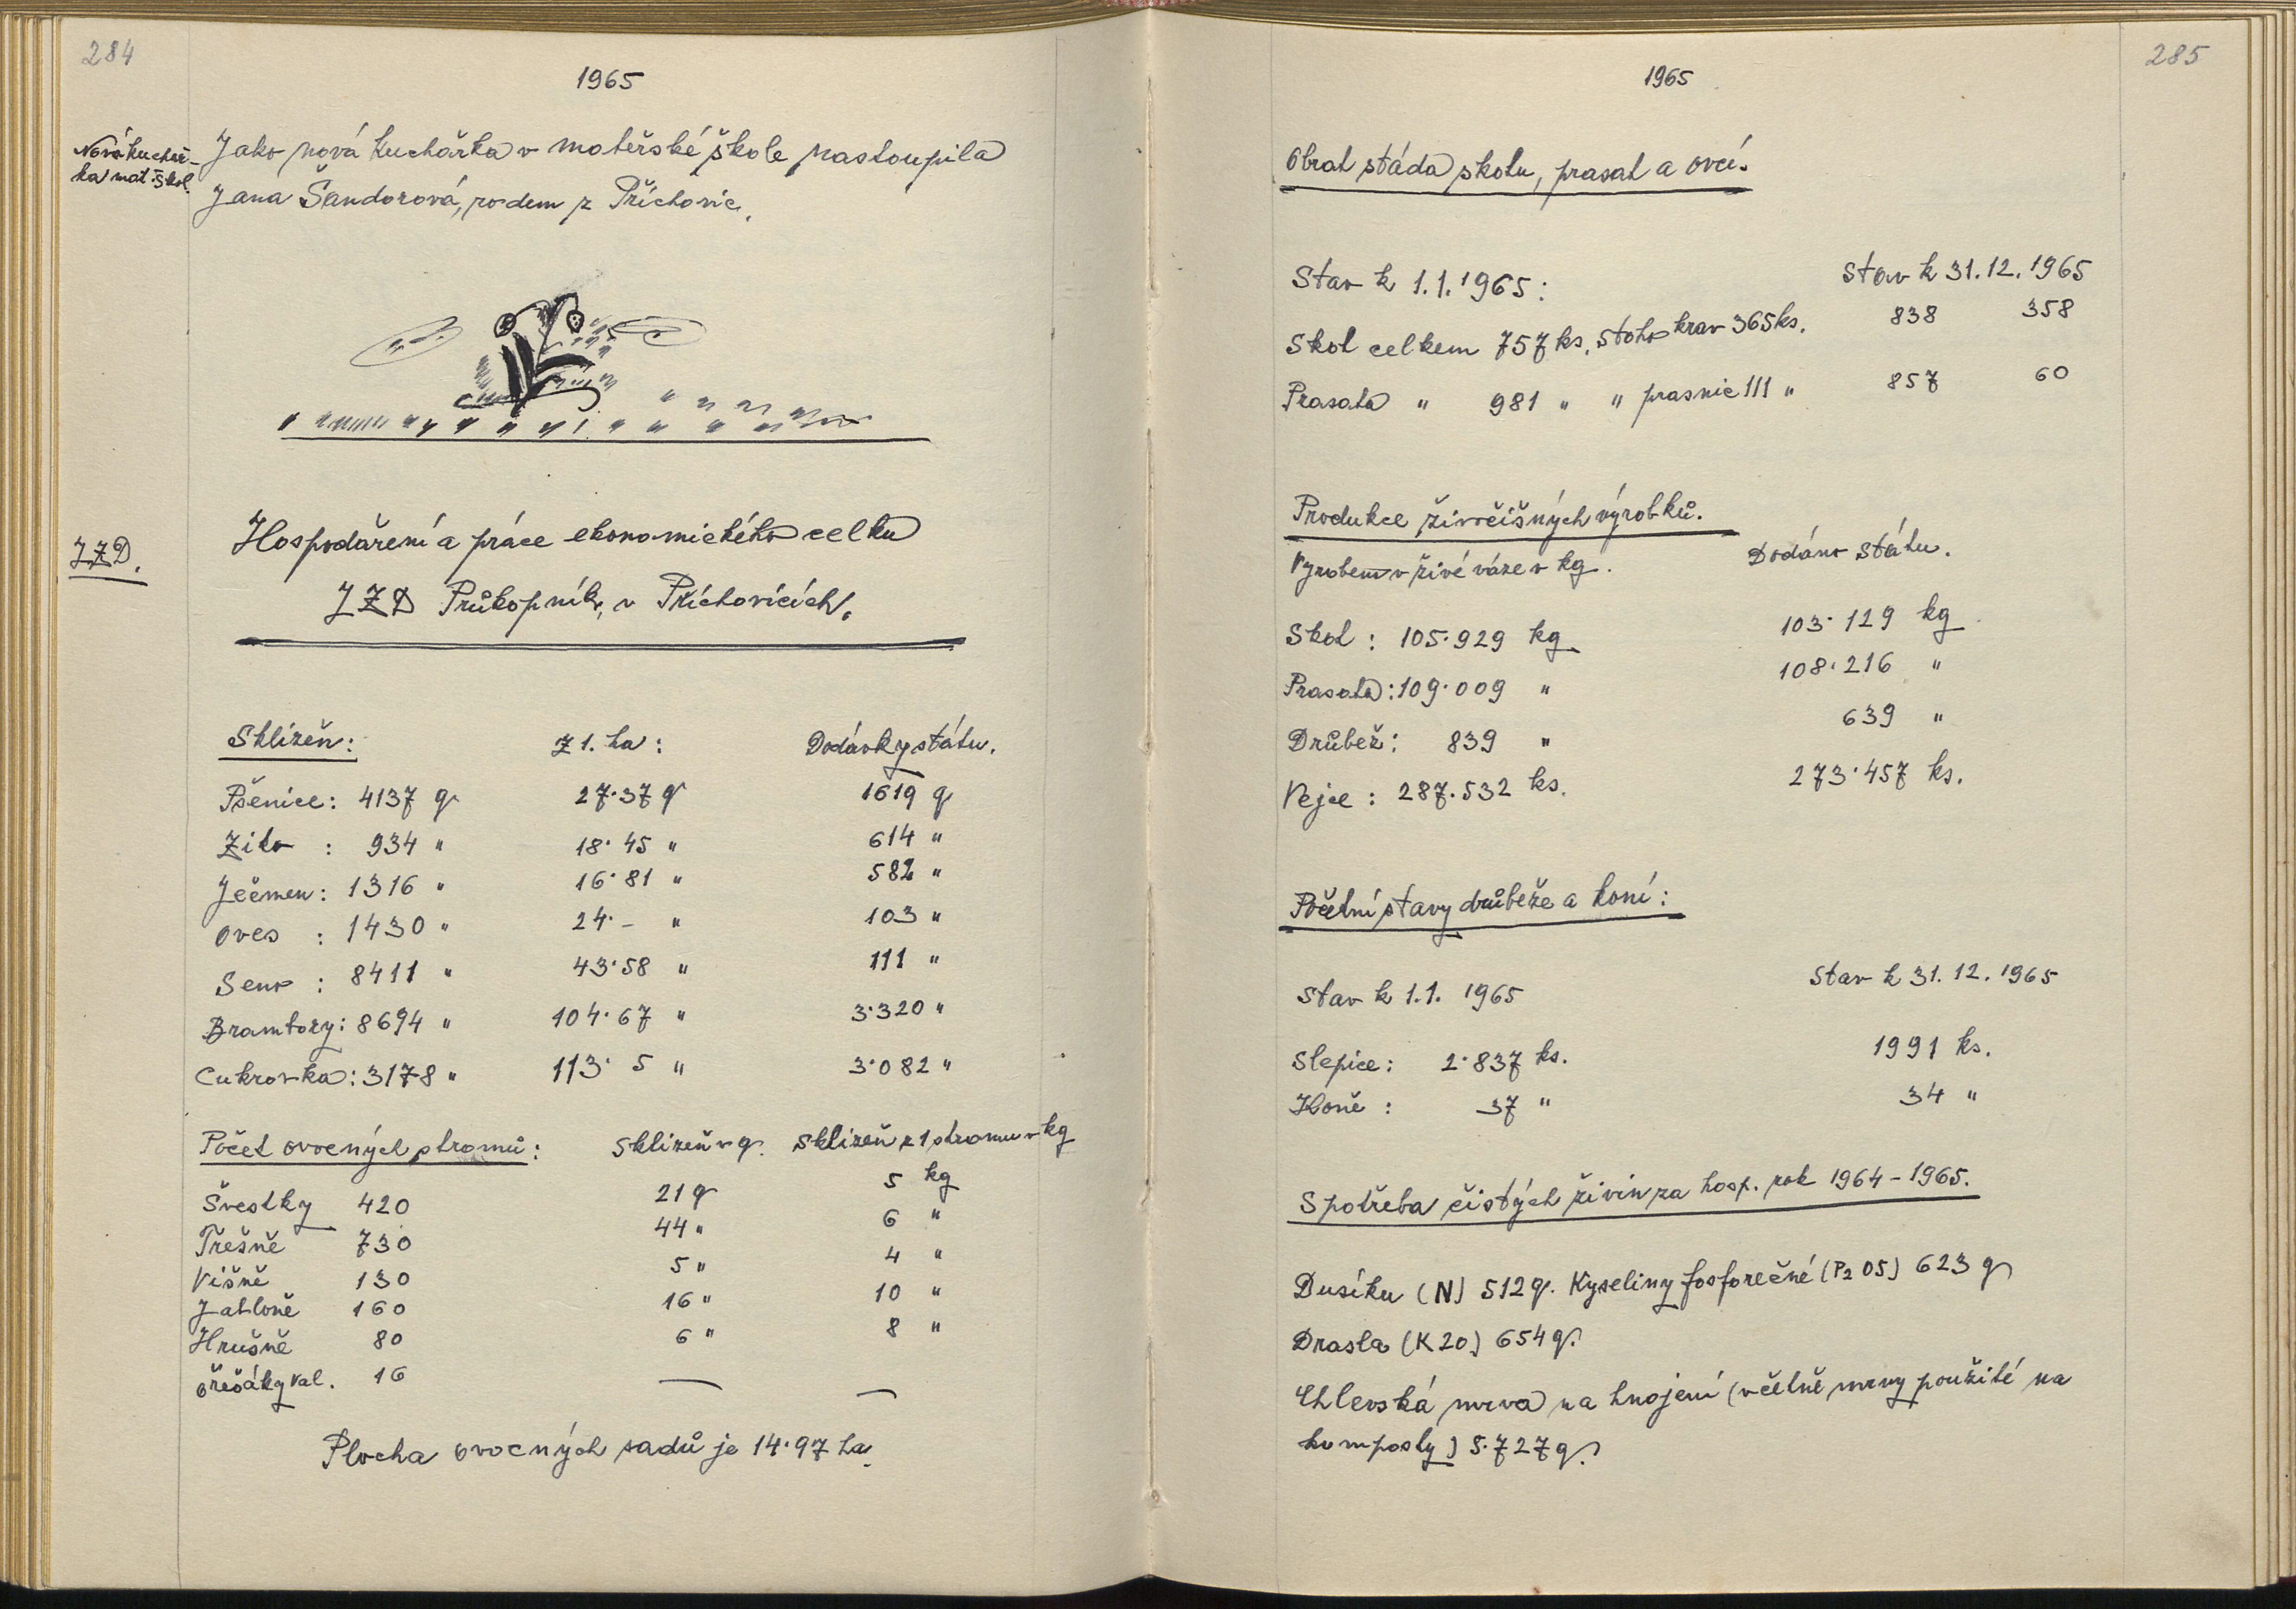 284
1965
Nová kuchař-
ka mat. škol.
Jako nová kuchařka v mateřské škole nastoupila
Jana Šandorová, rodem z Příchovic.
J.Z.D.
Hospodaření a práce ekonomického celku
JZD Průkopník, v Příchovicích.
Sklizeň: Z 1. ha: Dodávky státu.
Pšenice: 4137 q 27·37 q 1619 q
Žito : 934 " 18·45 " 614 "
Ječmen: 1316 " 16·81 " 582 "
Oves : 1430 " 24.- " 103 "
Seno : 8411 " 43·58 " 111 "
Brambory: 8694 " 104·67 " 3·320 "
Cukrovka: 3178 " 113· 5 " 3·082 "
Počet ovocných stromů: Sklizeň v q. Sklizeň z 1 stromu v kg
Švestky 420 21 q 5 kg
Třešně 730 44 " 6 "
Višně 130 5 " 4 "
Jabloně 160 16 " 10 "
Hrušně 80 6 " 8 "
Ořešáky val. 16 — —
Plocha ovocných sadů je 14·97 ha.
285
1965
Obrat stáda skotu, prasat a ovcí.
Stav k 1.1.1965: Stav k 31.12.1965
Skot celkem 757 ks, z toho krav 365 ks. 838 358
Prasata " 981 " " prasnic 111 " 857 60
Produkce živočišných výrobků.
Vyrobeno v živé váze v kg. Dodáno státu.
Skot : 105·929 kg 103·129 kg
Prasata: 109·009 " 108·216 "
Drůbež: 839 " 639 "
Vejce : 287.532 ks. 273·457 ks.
Početní stavy drůbeže a koní:
Stav k 1.1. 1965 Stav k 31.12.1965
Slepice: 2·837 ks. 1991 ks.
Koně : 37 " 34 "
Spotřeba čistých živin za hosp. rok 1964-1965.
Dusíku (N) 512 q. Kyseliny fosforečné (P2 O5) 623 q
Drasla (K2O) 654 q.
Chlevská mrva na hnojení (včetně mrvy použité na
komposty) 5.727 q.